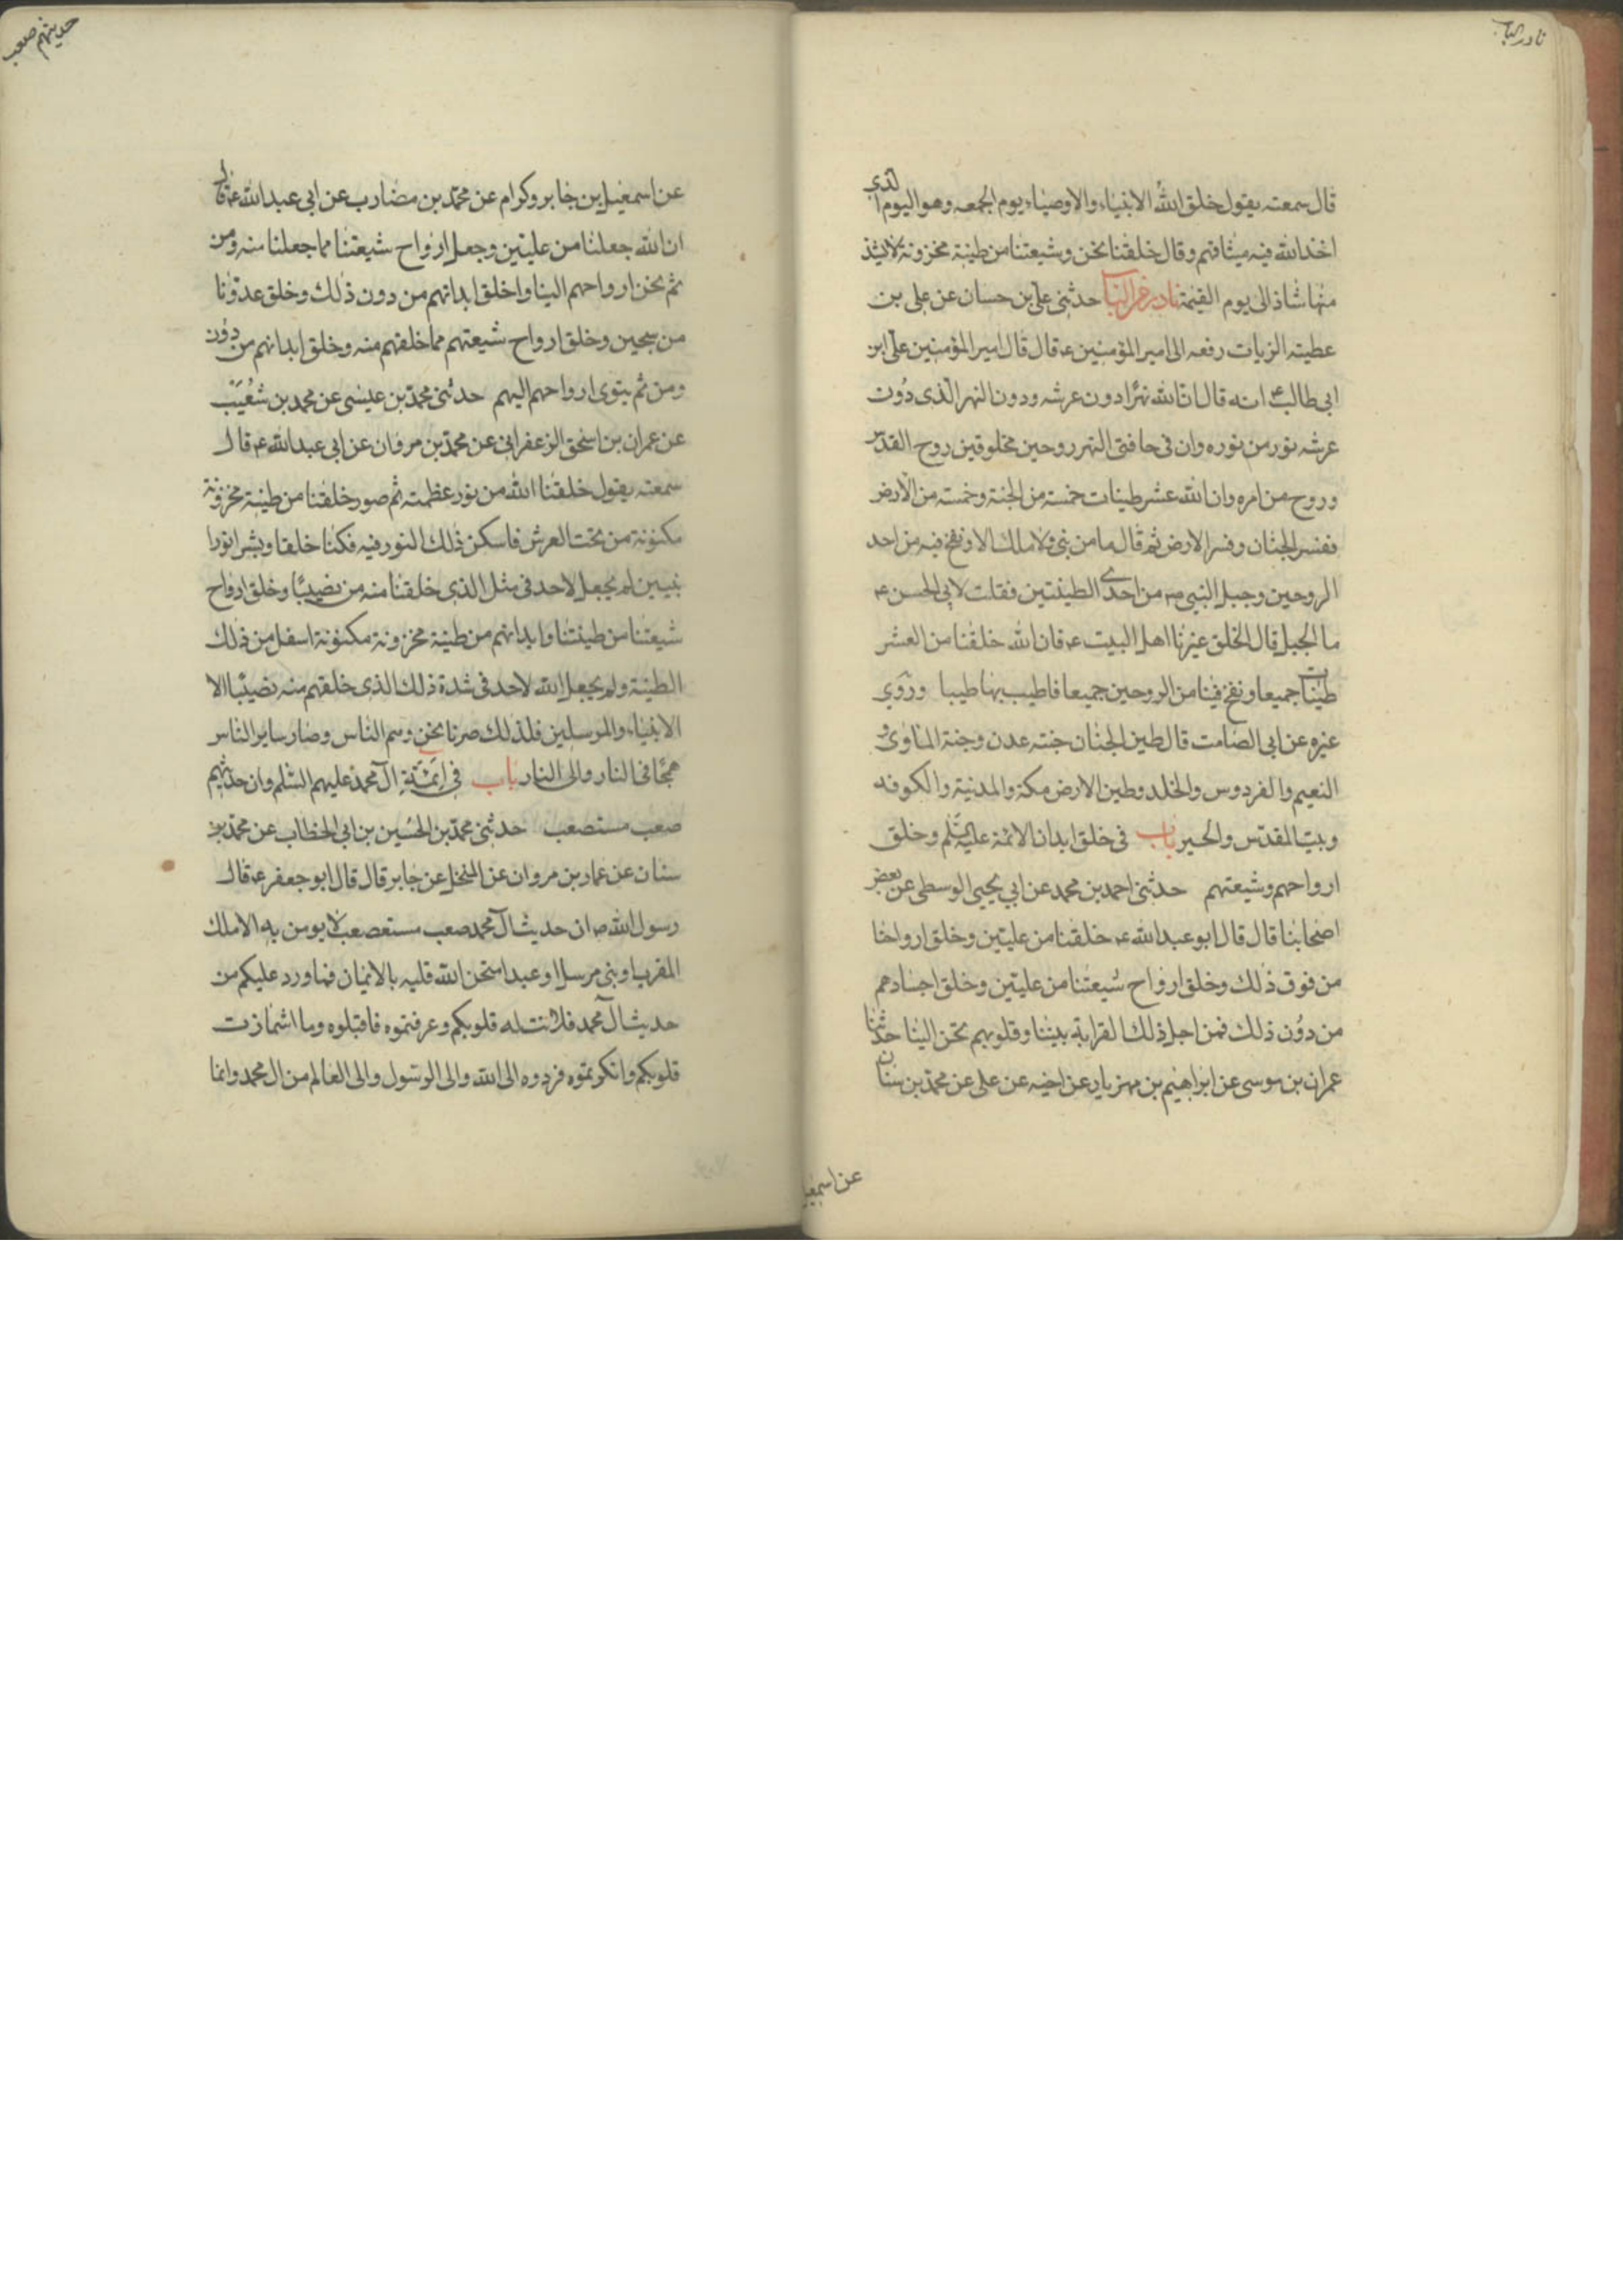 نادر الباب
قال سمعته يقول خلق الله الانبياء والاوصياء يوم الجمعه وهو اليوم الذي
اخذ الله فيه ميثاقهم وقال خلقنا نحن وشيعتنا من طينة مخزونة لا يشذ
منها شاذ الى يوم القيمة نادر من الباب حدثنى على بن حسان عن على بن
عطيته الزيات رفعه الى امير المؤمنين ع قال قال امير المؤمنين على ابن
ابى طالب ع انه قال ان لله نهرا دون عرشه ودون النهر الذى دون
عرشه نور من نوره وان فى حافتى النهر روحين مخلوقين روح القدس
وروح من امره وان لله عشر طينات خمسة من الجنة وخمسة من الارض
ففسر الجنان وفسر الارض ثم قال ما من نبى ولا ملك الا ونفخ فيه من احد
الروحين وجبل النبى ص من احدى الطينتين فقلت لابى الحسن ع
ما الجبل قال الخلق غيرنا اهل البيت ع فان الله خلقنا من العشر
طينات جميعا ونفخ فينا من الروحين جميعا فاطيب بها طيبا وروى
غيره عن ابى الصامت قال طين الجنان جنته عدن وجنة الماوى و
النعيم والفردوس والخلد وطين الارض مكة والمدنية والكوفه
وبيت المقدس والحير باب فى خلق ابدان الائمة عليهم السلم وخلق
ارواحهم وشيعتهم حدثنى احمد بن محمد عن ابي يحيى الوسطى عن بعض
اصحابنا قال قال ابو عبد الله ع خلقنا من عليين وخلق ارواحنا
من فوق ذلك وخلق ارواح شيعتنا من عليين وخلق اجسادهم
من دون ذلك فمن اجل ذلك القرابة بيننا وقلوبهم تحن الينا حدثنا
عمران بن موسى عن ابراهيم بن مهزيار عن اخيه عن على عن محمد بن سنان
عن اسمعيل
حديثهم صعب
عن اسمعيل بن جابر وكرام عن محمد بن مضارب عن ابى عبد الله ع قال
ان الله جعلنا من عليين وجعل ارواح شيعتنا مما جعلنا منه ومن
ثم تحن ارواحهم الينا واخلق ابدانهم من دون ذلك وخلق عدونا
من سجين وخلق ارواح شيعتهم مما خلقهم منه وخلق ابدانهم من دون
ومن ثم يتوى ارواحهم اليهم حدثنى محمد بن عيسى عن محمد بن شعيب
عن عمران بن اسحق الزعفرانى عن محمد بن مروان عن ابى عبد الله ع قال
سمعته يقول خلقنا الله من نور عظمته ثم صور خلقنا من طينة مخزونة
مكنونة من تحت العرش فاسكن ذلك النور فيه فكنا خلقا وبشرا نورا
نيين لم يجعل لاحد فى مثل الذى خلقنا منه من نصيبا وخلق ارواح
شيعتنا من طينتنا وابدانهم من طنية مخزونة مكنونة اسفل من ذلك
الطنية ولم يجعل الله لاحد فى شدة ذلك الذى خلقهم منه نصيبا الا
الانبياء والمرسلين فلذلك صرنا نحن وهم الناس وصار ساير الناس
همجا فى النار والى النار باب فى ائمة ال محمد عليهم السلم وان حديثهم
صعب مستصعب حدثنى محمد بن الحسين بن ابى الخطاب عن محمد بن
سنان عن عمار بن مروان عن المنخل عن جابر قال قال ابو جعفر ع قال
رسول الله ص ان حديث ال محمد صعب مستصعب لا يومن به الا ملك
المقرب او نبى مرسل او عبد امتحن الله قلبه بالايمان فما ورد عليكم من
حديث ال محمد فلانت له قلوبكم وعرفتموه فاقبلوه وما اشمازت
قلوبكم وانكرتموه فردوه الى الله والى الرسول والى العالم من ال محمد وانما